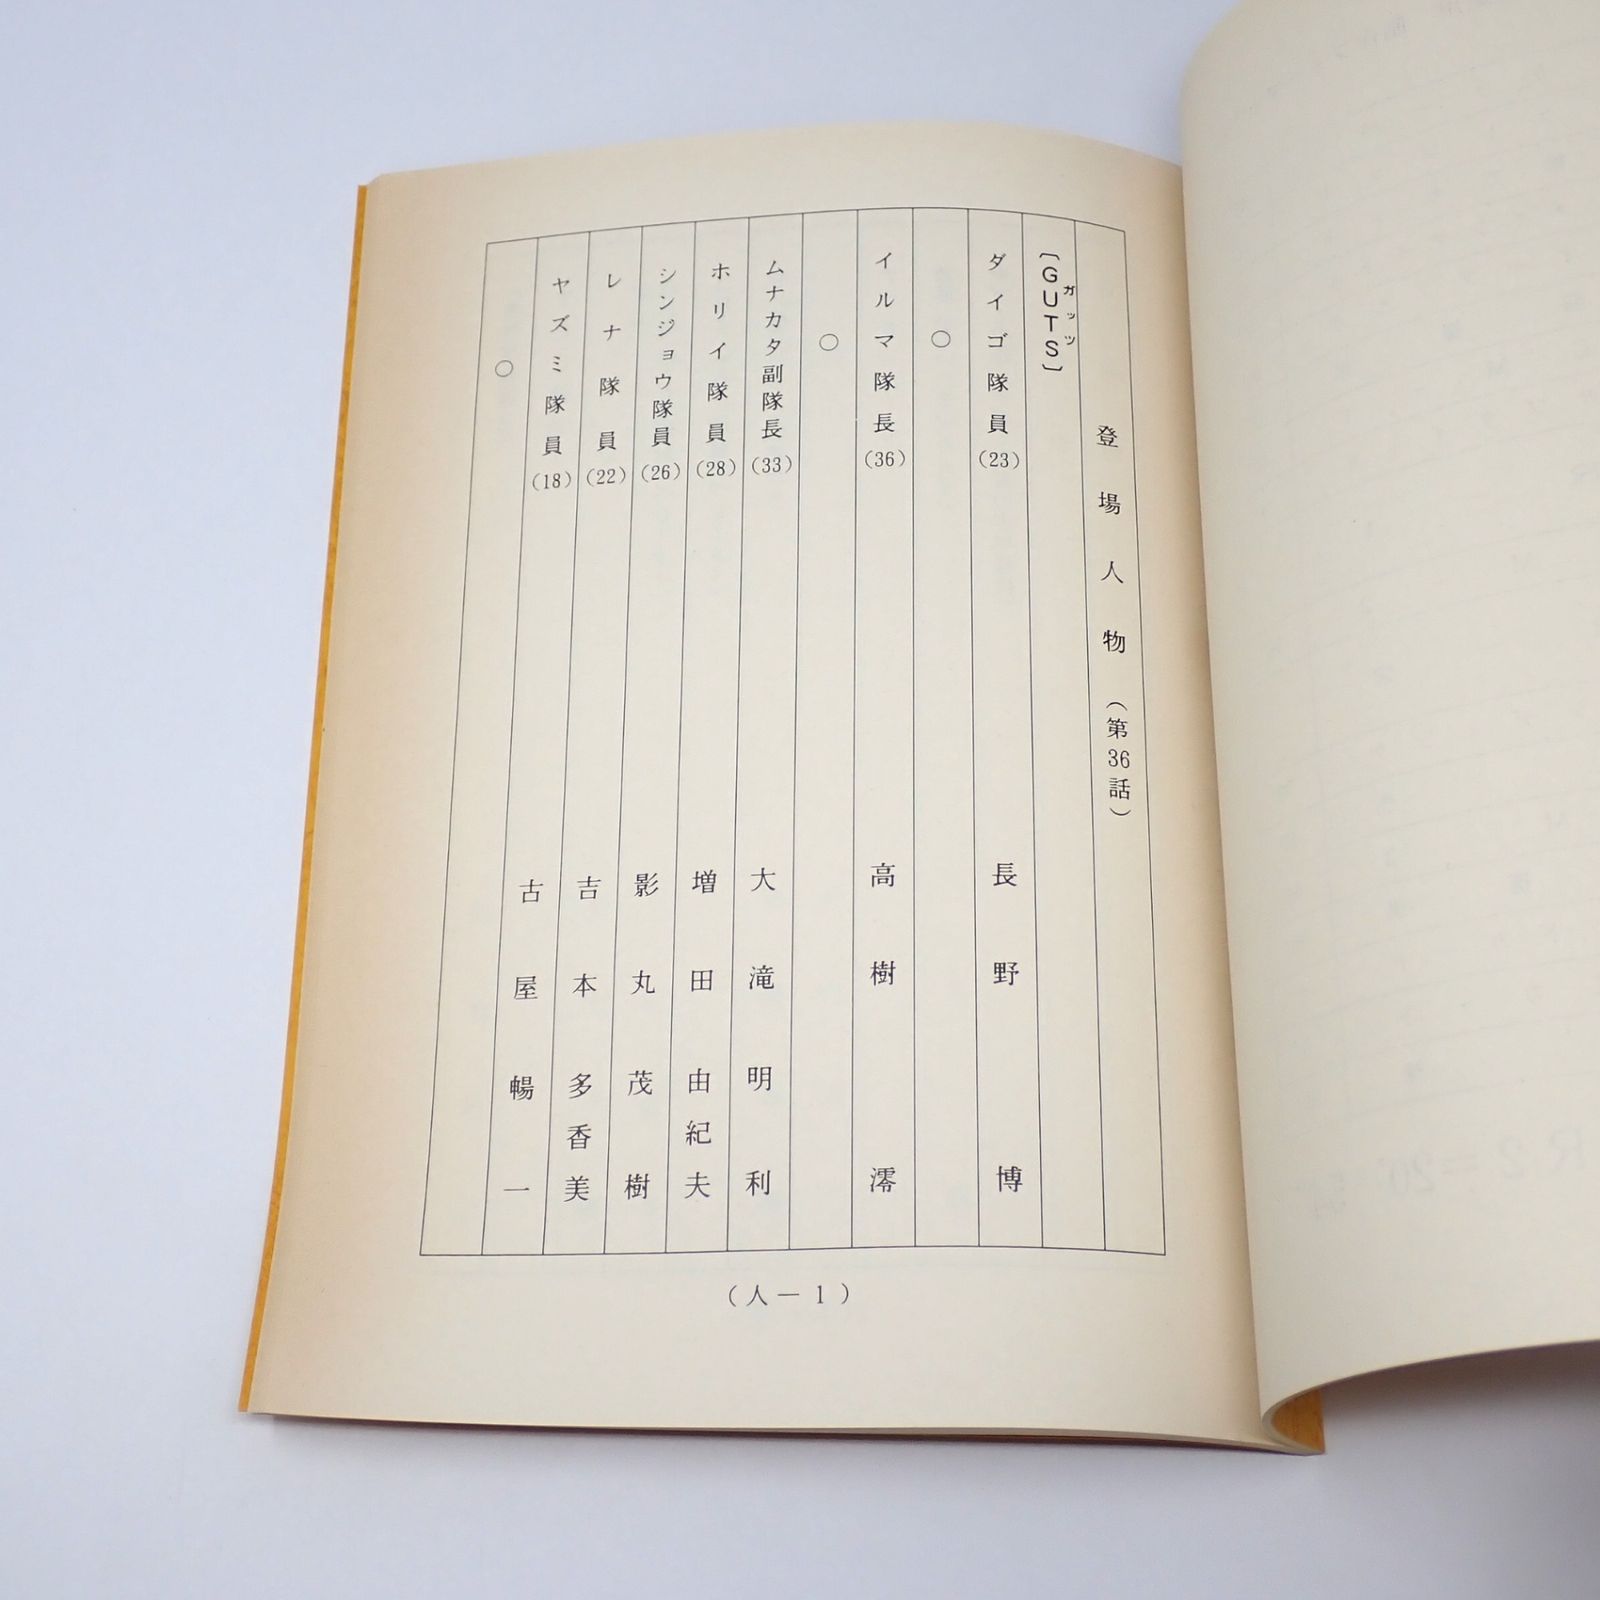 登場人物（第36話）
〔GUTS〕
ガッツ
ダイゴ隊員(23) 長野博
○
イルマ隊長(36) 高樹澪
○
ムナカタ副隊長(33) 大滝明利
ホリイ隊員(28) 増田由紀夫
シンジョウ隊員(26) 影丸茂樹
レナ隊員(22) 吉本多香美
ヤズミ隊員(18) 古屋暢一
○
（人－1）